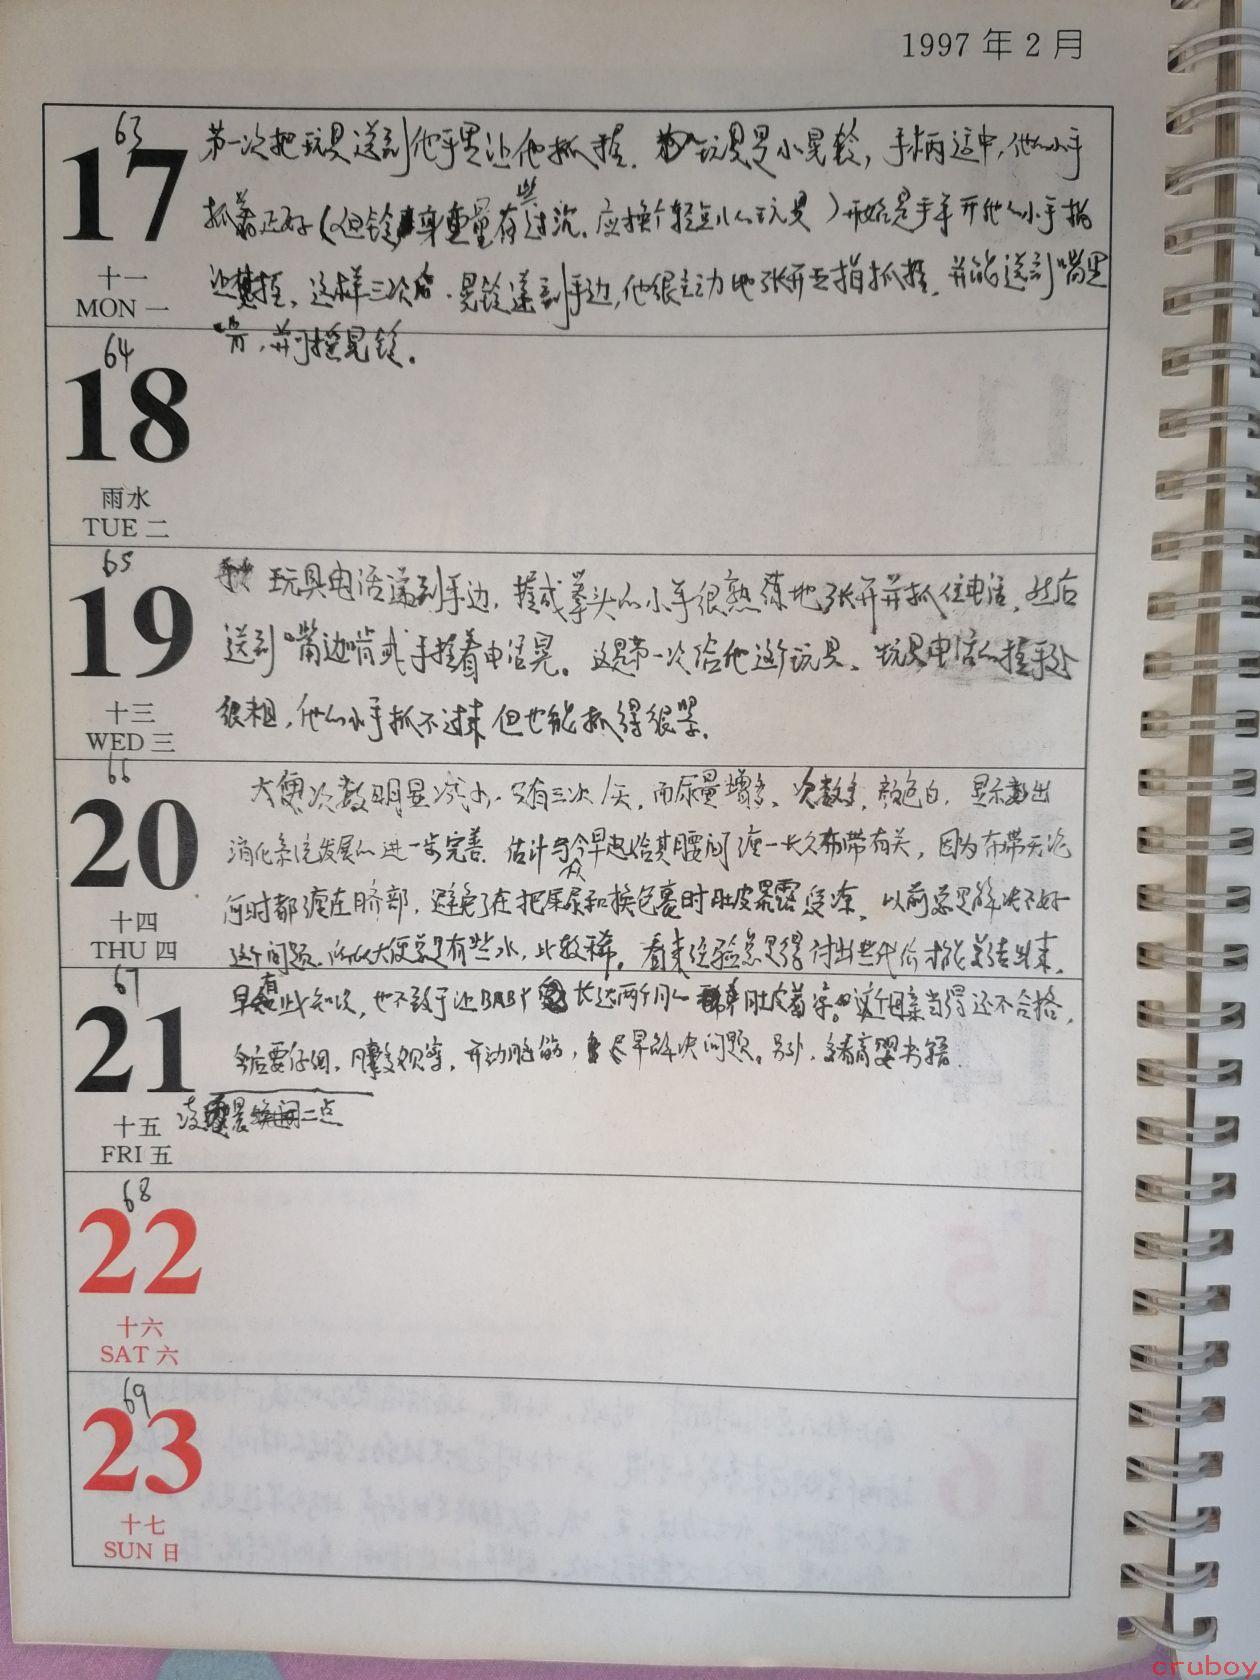 1997年2月
63
17
十一
MON 一
第一次把玩具送到他手里让他抓握. 玩具是小晃铃, 手柄适中, 他的小手
抓着正好(但铃身重量有些过沉, 应换个轻点儿的玩具)开始是手拿开他的小手指
让握, 这样三次后, 晃铃递到手边, 他很主动地张开五指抓握, 并能送到嘴里
啃, 并可摇晃铃.
64
18
雨水
TUE 二
65
19
十三
WED 三
玩具电话递到手边, 握成拳头的小手很熟练地张开并抓住电话, 然后
送到嘴边啃或手握着电话晃。这是第一次给他这个玩具、玩具电话的握手处
很粗, 他的小手抓不过来但也能抓得很牢.
66
20
十四
THU 四
大便次数明显减少, 只有三次/天, 而尿量增多、次数多, 颜色白, 显示出
消化系统发展的进一步完善. 估计与今早起给其腰间缠一长久布带有关, 因为布带无论
何时都缠在脐部, 避免了在把屎尿和换包裹时肚皮暴露受凉. 以前总是解决不好
这个问题. 所以大便总是有些水, 比较稀。看来经验总是得付出些代价才能总结出来.
67
21
十五
FRI 五
早有此知识, 也不致于让BABY长达两个月的肚皮着凉。这个母亲当得还不合格.
今后要仔细, 多观察, 开动脑筋, 尽早解决问题。另外, 多看育婴书籍.
凌晨二点
68
22
十六
SAT 六
69
23
十七
SUN 日
cruboy